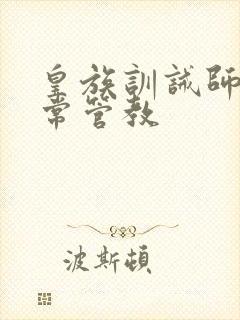 皇族訓誡師
常管教
波斯頓